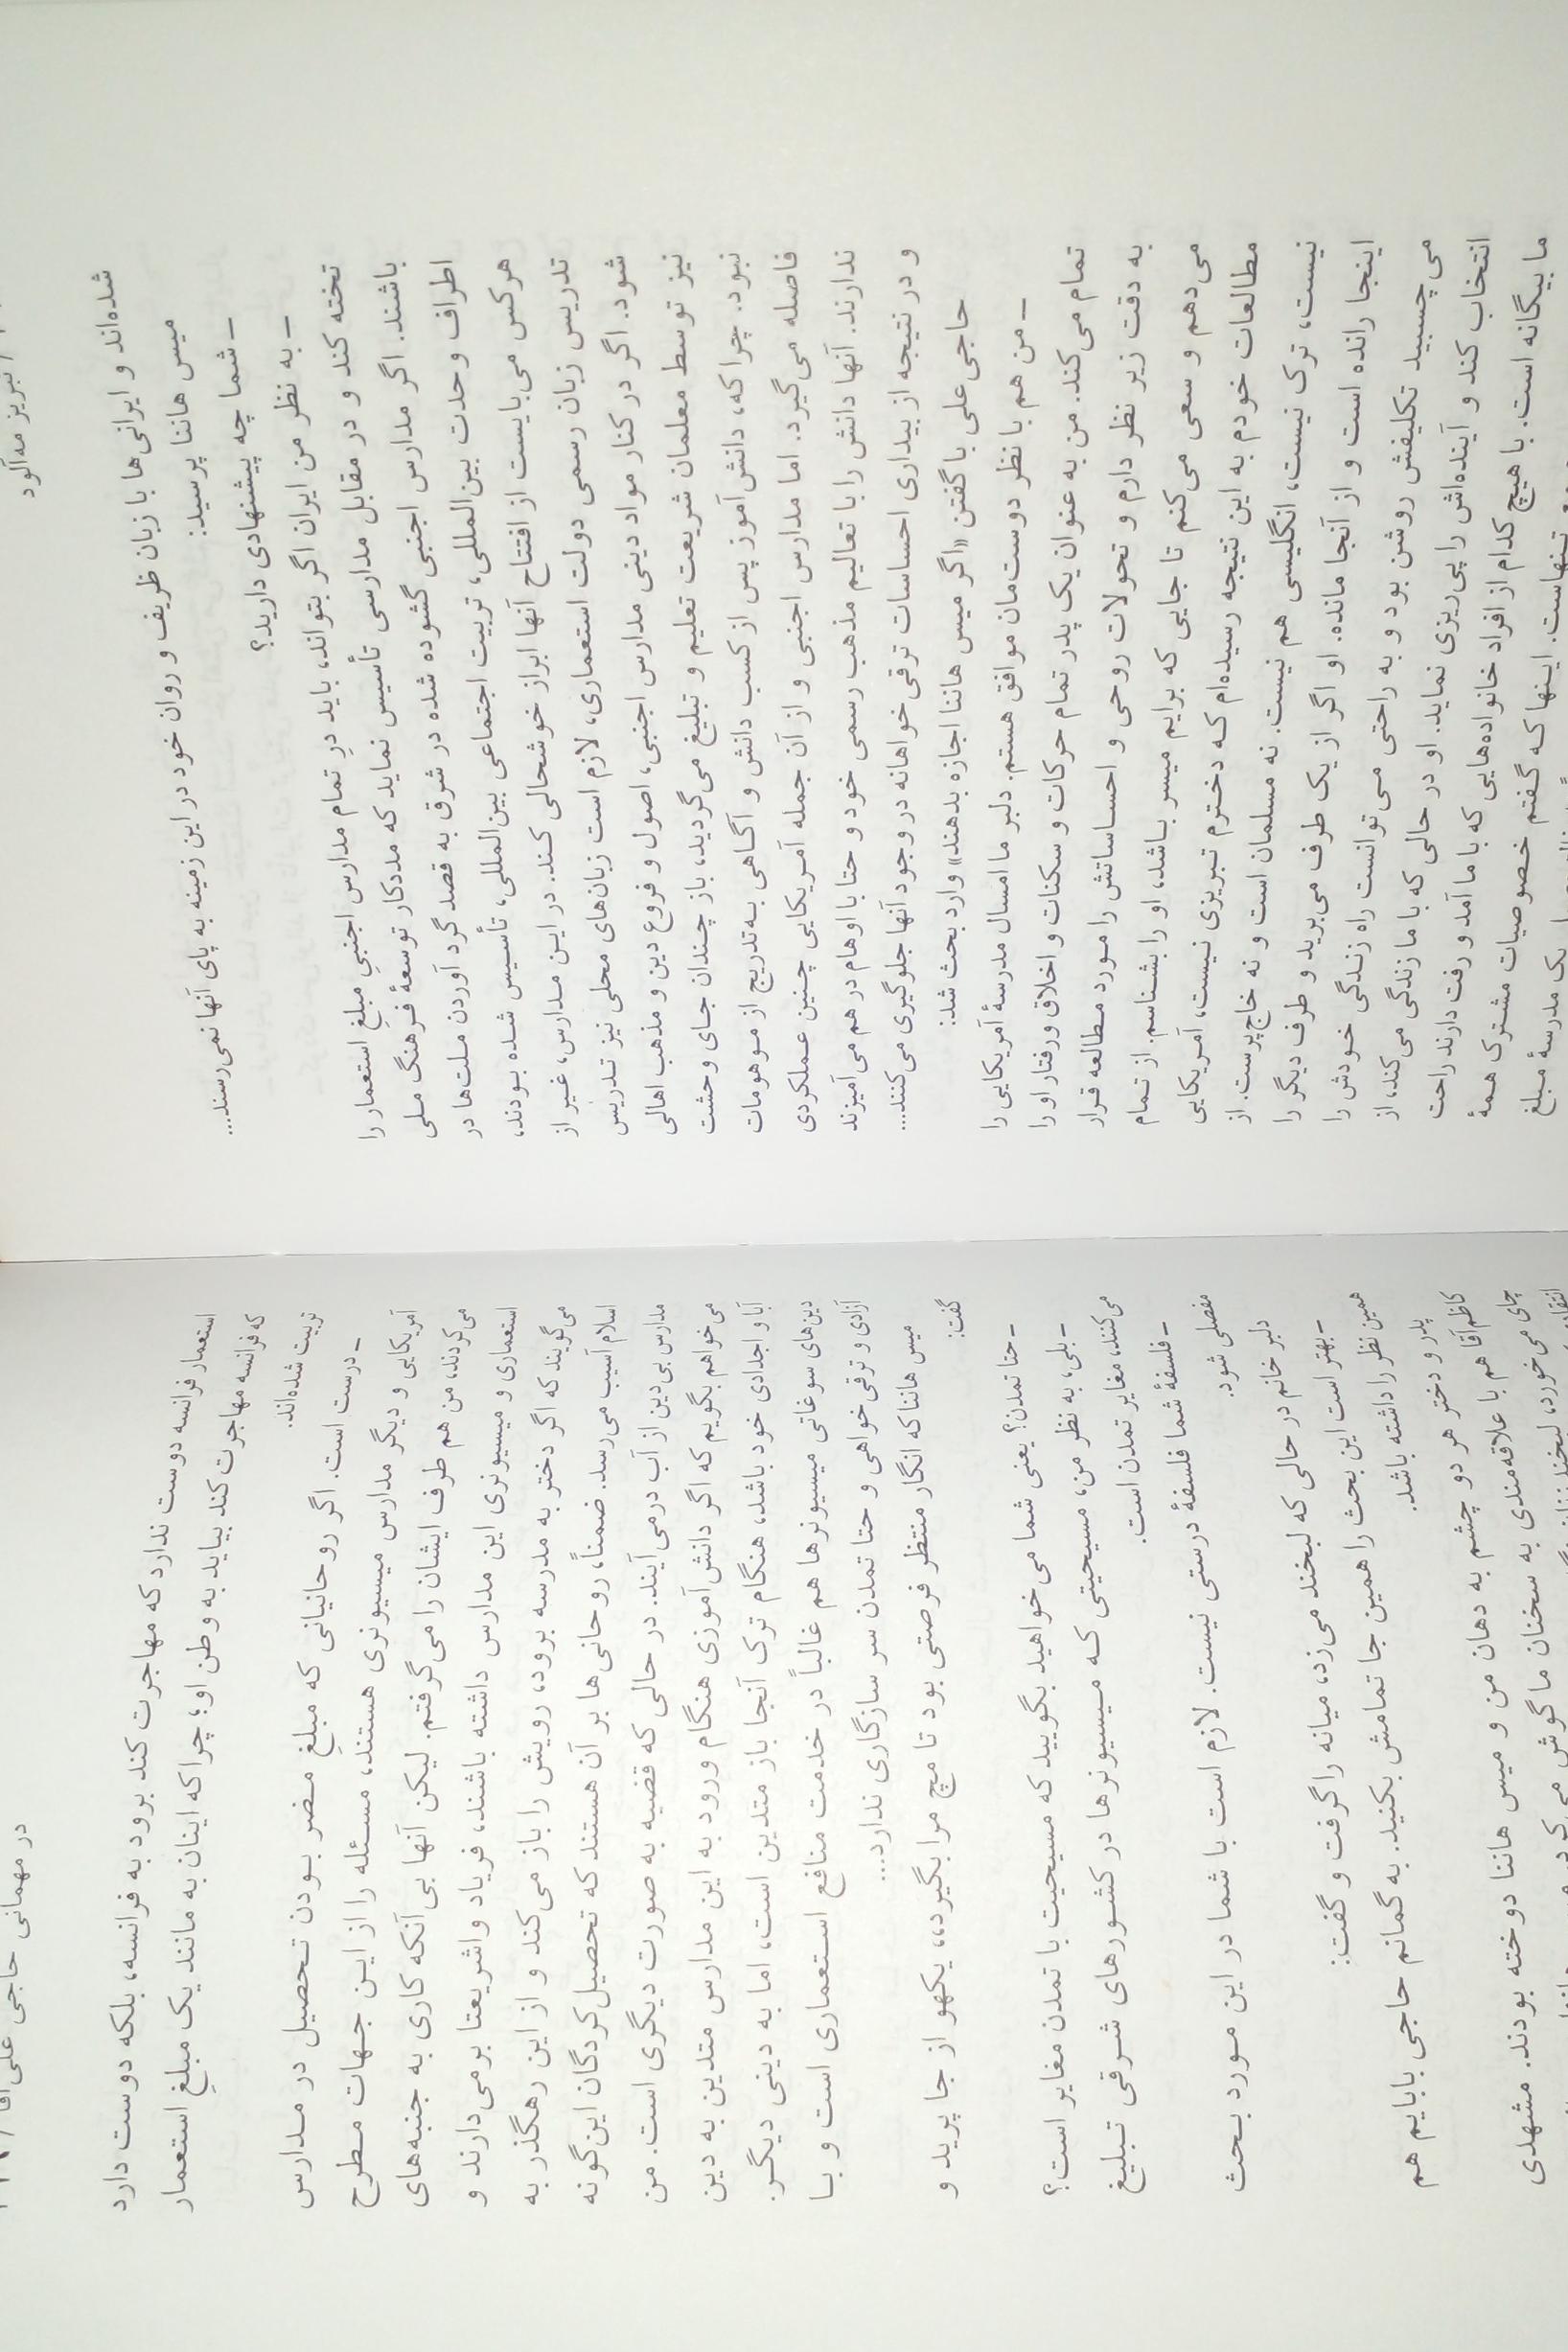 / تبریز مه‌آلود
شده‌اند و ایرانی‌ها با زبان ظریف و روان خود در این زمینه به پای آنها نمی‌رسند....
میس هاننا پرسید:
– شما چه پیشنهادی دارید؟
– به نظر من ایران اگر بتواند، باید درِ تمام مدارس اجنبیِ مبلغِ استعمار را
تخته کند و در مقابل مدارسی تأسیس نماید که مددکار توسعهٔ فرهنگ ملی
باشند. اگر مدارس اجنبی گشوده شده در شرق به قصد گرد آوردن ملت‌ها در
اطراف وحدت بین‌المللی، تربیت اجتماعی بین‌المللی، تأسیس شده بودند،
هرکس می‌بایست از افتتاح آنها ابراز خوشحالی کند. در این مدارس، غیر از
تدریس زبان رسمی دولت استعماری، لازم است زبان‌های محلی نیز تدریس
شود. اگر در کنار مواد دینی مدارس اجنبی، اصول و فروع دین و مذهب اهالی
نیز توسط معلمان شریعت تعلیم و تبلیغ می‌گردید، باز چندان جای وحشت
نبود. چرا که، دانش‌آموز پس از کسب دانش و آگاهی به‌تدریج از موهومات
فاصله می‌گیرد. اما مدارس اجنبی و از آن جمله آمریکایی چنین عملکردی
ندارند. آنها دانش را با تعالیم مذهب رسمی خود و حتا با اوهام در هم می‌آمیزند
و در نتیجه از بیداری احساسات ترقی‌خواهانه در وجود آنها جلوگیری می‌کنند...
حاجی علی با گفتن «اگر میس هاننا اجازه بدهند» وارد بحث شد:
– من هم با نظر دوست‌مان موافق هستم. دلبر ما امسال مدرسهٔ آمریکایی را
تمام می‌کند. من به عنوان یک پدر تمام حرکات و سکنات و اخلاق و رفتار او را
به دقت زیر نظر دارم و تحولات روحی و احساساتش را مورد مطالعه قرار
می‌دهم و سعی می‌کنم تا جایی که برایم میسر باشد، او را بشناسم. از تمام
مطالعات خودم به این نتیجه رسیده‌ام که دخترم تبریزی نیست، آمریکایی
نیست، ترک نیست، انگلیسی هم نیست. نه مسلمان است و نه خاج‌پرست. از
اینجا رانده است و از آنجا مانده. او اگر از یک طرف می‌برید و طرف دیگر را
می‌چسبید تکلیفش روشن بود و به راحتی می‌توانست راه زندگی خودش را
انتخاب کند و آینده‌اش را پی‌ریزی نماید. او در حالی که با ما زندگی می‌کند، از
ما بیگانه است. با هیچ کدام از افراد خانواده‌هایی که با ما آمد و رفت دارند راحت
تنهاست. اینها که گفتم خصوصیات مشترک همهٔ
یک مدرسهٔ مبلغ
در مهمانی حاجی علی‌آقا /
استعمار فرانسه دوست ندارد که مهاجرت کند برود به فرانسه، بلکه دوست دارد
که فرانسه مهاجرت کند بیاید به وطن او؛ چرا که اینان به مانند یک مبلغِ استعمار
تربیت شده‌اند.
– درست است. اگر روحانیانی که مبلغِ مضر بودن تحصیل در مدارس
آمریکایی و دیگر مدارس میسیونری هستند، مسئله را از این جهات مطرح
می‌کردند، من هم طرف ایشان را می‌گرفتم. لیکن آنها بی‌آنکه کاری به جنبه‌های
استعماری و میسیونری این مدارس داشته باشند، فریاد واشریعتا برمی‌دارند و
می‌گویند که اگر دختر به مدرسه برود، رویش را باز می‌کند و از این رهگذر به
اسلام آسیب می‌رسد. ضمناً، روحانی‌ها بر آن هستند که تحصیل‌کردگان این‌گونه
مدارس بی‌دین از آب درمی‌آیند. در حالی که قضیه به صورت دیگری است. من
می‌خواهم بگویم که اگر دانش‌آموزی هنگام ورود به این مدارس متدین به دین
آبا و اجدادی خود باشد، هنگام ترک آنجا باز متدین است، اما به دینی دیگر.
دین‌های سوغاتی میسیونرها هم غالباً در خدمت منافع استعماری است و با
آزادی و ترقی‌خواهی و حتا تمدن سر سازگاری ندارد...
میس هاننا که انگار منتظر فرصتی بود تا مچ مرا بگیرد،، یکهو از جا پرید و
گفت:
– حتا تمدن؟ یعنی شما می‌خواهید بگویید که مسیحیت با تمدن مغایر است؟
– بلی، به نظر من، مسیحیتی که میسیونرها در کشورهای شرقی تبلیغ
می‌کنند، مغایر تمدن است.
– فلسفهٔ شما فلسفهٔ درستی نیست. لازم است با شما در این مورد بحث
مفصلی شود.
دلبر خانم در حالی که لبخند می‌زد، میانه را گرفت و گفت:
– بهتر است این بحث را همین جا تمامش بکنید. به گمانم حاجی بابایم هم
همین نظر را داشته باشد.
پدر و دختر هر دو چشم به دهان من و میس هاننا دوخته بودند. مشهدی
کاظم‌آقا هم با علاقه‌مندی به سخنان ما گوش می‌کرد
چای می‌خورد، لبخند